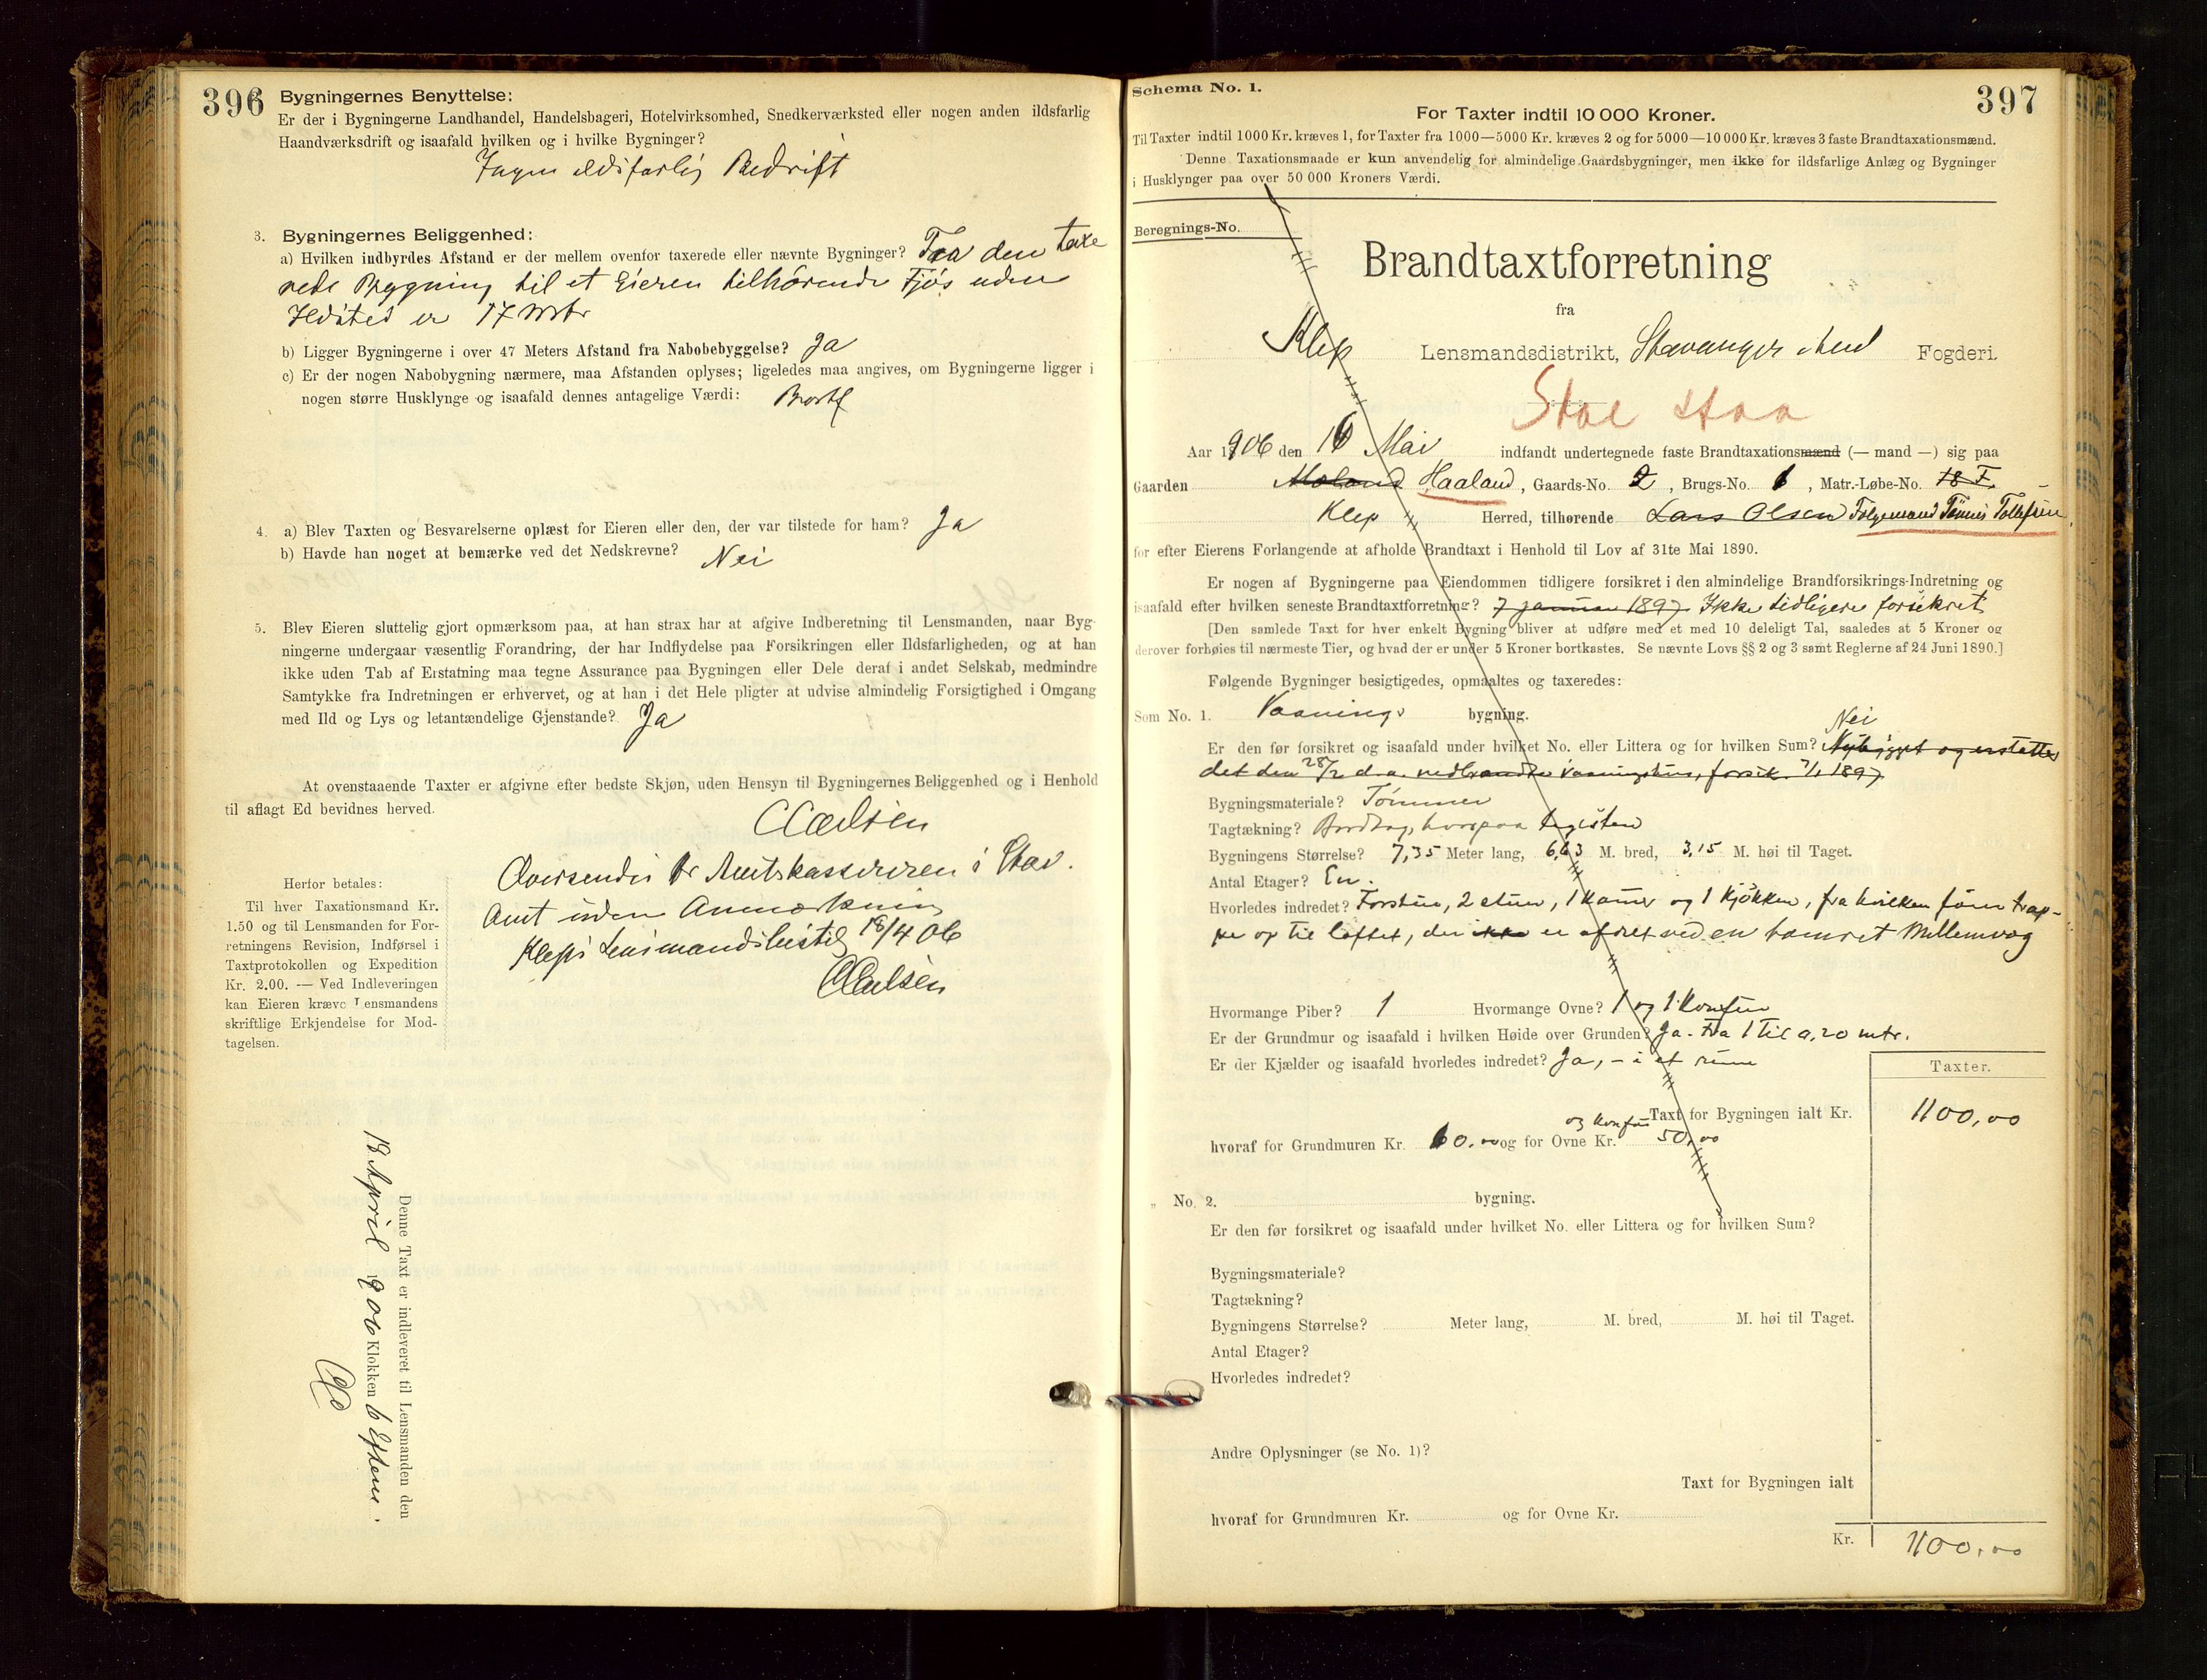 396
Bygningernes Benyttelse:
Er der i Bygningerne Landhandel, Handelsbageri, Hotelvirksomhed, Snedkerværksted eller nogen anden ildsfarlig
Haandværksdrift og isaafald hvilken og i hvilke Bygninger?
Ingen ildsfarlig Bedrift
3. Bygningernes Beliggenhed:
a) Hvilken indbyrdes Afstand er der mellem ovenfor taxerede eller nævnte Bygninger? Fra den taxe
rede Bygning til et Eieren tilhørende Fjøs uden
Ildsted er 17 Mtr
b) Ligger Bygningerne i over 47 Meters Afstand fra Nabobebyggelse? Ja
c) Er der nogen Nabobygning nærmere, maa Afstanden oplyses; ligeledes maa angives, om Bygningerne ligger i
nogen større Husklynge og isaafald dennes antagelige Værdi: Bortf
4. a) Blev Taxten og Besvarelserne oplæst for Eieren eller den, der var tilstede for ham? Ja
b) Havde han noget at bemærke ved det Nedskrevne? Nei
5. Blev Eieren sluttelig gjort opmærksom paa, at han strax har at afgive Indberetning til Lensmanden, naar Byg-
ningerne undergaar væsentlig Forandring, der har Indflydelse paa Forsikringen eller Ildsfarligheden, og at han
ikke uden Tab af Erstatning maa tegne Assurance paa Bygningen eller Dele deraf i andet Selskab, medmindre
Samtykke fra Indretningen er erhvervet, og at han i det Hele pligter at udvise almindelig Forsigtighed i Omgang
med Ild og Lys og letantændelige Gjenstande? Ja
At ovenstaaende Taxter er afgivne efter bedste Skjøn, uden Hensyn til Bygningernes Beliggenhed og i Henhold
til aflagt Ed bevidnes herved.
Oversendes Hr Amtskassereren i Stav.
Amt uden Anmærkning
Kleps Lensmandsbestil 18/4 06
Herfor betales:
Til hver Taxationsmand Kr.
1.50 og til Lensmanden for For-
retningens Revision, Indførsel i
Taxtprotokollen og Expedition
Kr. 2.00. — Ved Indleveringen
kan Eieren kræve Lensmandens
skriftlige Erkjendelse for Mod-
tagelsen.
Denne Taxt er indleveret til Lensmanden den
18 April 1906 Klokken 6 Eftem.
Schema No. 1.
397
For Taxter indtil 10 000 Kroner.
Til Taxter indtil 1000 Kr. kræves 1, for Taxter fra 1000—5000 Kr. kræves 2 og for 5000—10 000 Kr. kræves 3 faste Brandtaxationsmænd.
Denne Taxationsmaade er kun anvendelig for almindelige Gaardsbygninger, men ikke for ildsfarlige Anlæg og Bygninger
i Husklynger paa over 50 000 Kroners Værdi.
Beregnings-No.
Brandtaxtforretning
fra
Klep Lensmandsdistrikt, Stavanger Amt Fogderi.
Skal staa
Aar 1906 den 16 Mai indfandt undertegnede faste Brandtaxationsmænd (— mand —) sig paa
Gaarden Haaland, Gaards-No. 2, Brugs-No. 1, Matr.-Løbe-No. 18 F.
Klep Herred, tilhørende Lars Olsen Tønnes Tollefsen,
for efter Eierens Forlangende at afholde Brandtaxt i Henhold til Lov af 31te Mai 1890.
Er nogen af Bygningerne paa Eiendommen tidligere forsikret i den almindelige Brandforsikrings-Indretning og
isaafald efter hvilken seneste Brandtaxtforretning? 7 januar 1897 Ikke tidligere forsikret
[Den samlede Taxt for hver enkelt Bygning bliver at udføre med et med 10 deleligt Tal, saaledes at 5 Kroner og
derover forhøies til nærmeste Tier, og hvad der er under 5 Kroner bortkastes. Se nævnte Lovs §§ 2 og 3 samt Reglerne af 24 Juni 1890.]
Følgende Bygninger besigtigedes, opmaaltes og taxeredes:
Som No. 1. Vaanings bygning.
Nei
Er den før forsikret og isaafald under hvilket No. eller Littera og for hvilken Sum? Nybygget og erstatter
det den 28/2 d.a. nedbrændte Vaaningshus, forsik. 7/1 1897
Bygningsmateriale? Tømmer
Tagtækning? Bordtag, hvorpaa teglsten
Bygningens Størrelse? 7,35 Meter lang, 6,63 M. bred, 3,15 M. høi til Taget.
Antal Etager? En.
Hvorledes indredet? Forstue, 2 stuer, 1 Kamer og 1 Kjøkken, fra hvilken fører trap-
pe op til loftet, der ikke er afdelt ved en tømret Mellemvæg
Hvormange Piber? 1 Hvormange Ovne? 1 og 1 Komfur
Er der Grundmur og isaafald i hvilken Høide over Grunden? Ja. Fra 1 til 0,20 mtr.
Er der Kjælder og isaafald hvorledes indredet? Ja, - i et rum
Taxter.
Taxt for Bygningen ialt Kr. 1100,00
og Komfur
hvoraf for Grundmuren Kr. 60.00 og for Ovne Kr. 50,00
" No. 2. bygning.
Er den før forsikret og isaafald under hvilket No. eller Littera og for hvilken Sum?
Bygningsmateriale?
Tagtækning?
Bygningens Størrelse? Meter lang, M. bred, M. høi til Taget.
Antal Etager?
Hvorledes indredet?
Andre Oplysninger (se No. 1)?
Taxt for Bygningen ialt
hvoraf for Grundmuren Kr. og for Ovne Kr.
Kr. 1100,00